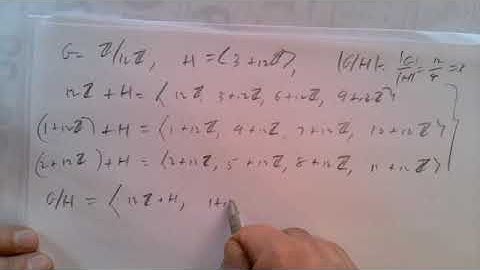 G = ℤ/12ℤ, H = ⟨3+12ℤ⟩, |G/H| = |G|/|H| = 12/4 = 3
12ℤ + H = {12ℤ, 3+12ℤ, 6+12ℤ, 9+12ℤ}
(1+12ℤ) + H = {1+12ℤ, 4+12ℤ, 7+12ℤ, 10+12ℤ}
(2+12ℤ) + H = {2+12ℤ, 5+12ℤ, 8+12ℤ, 11+12ℤ}
G/H = { 12ℤ+H, 1+1